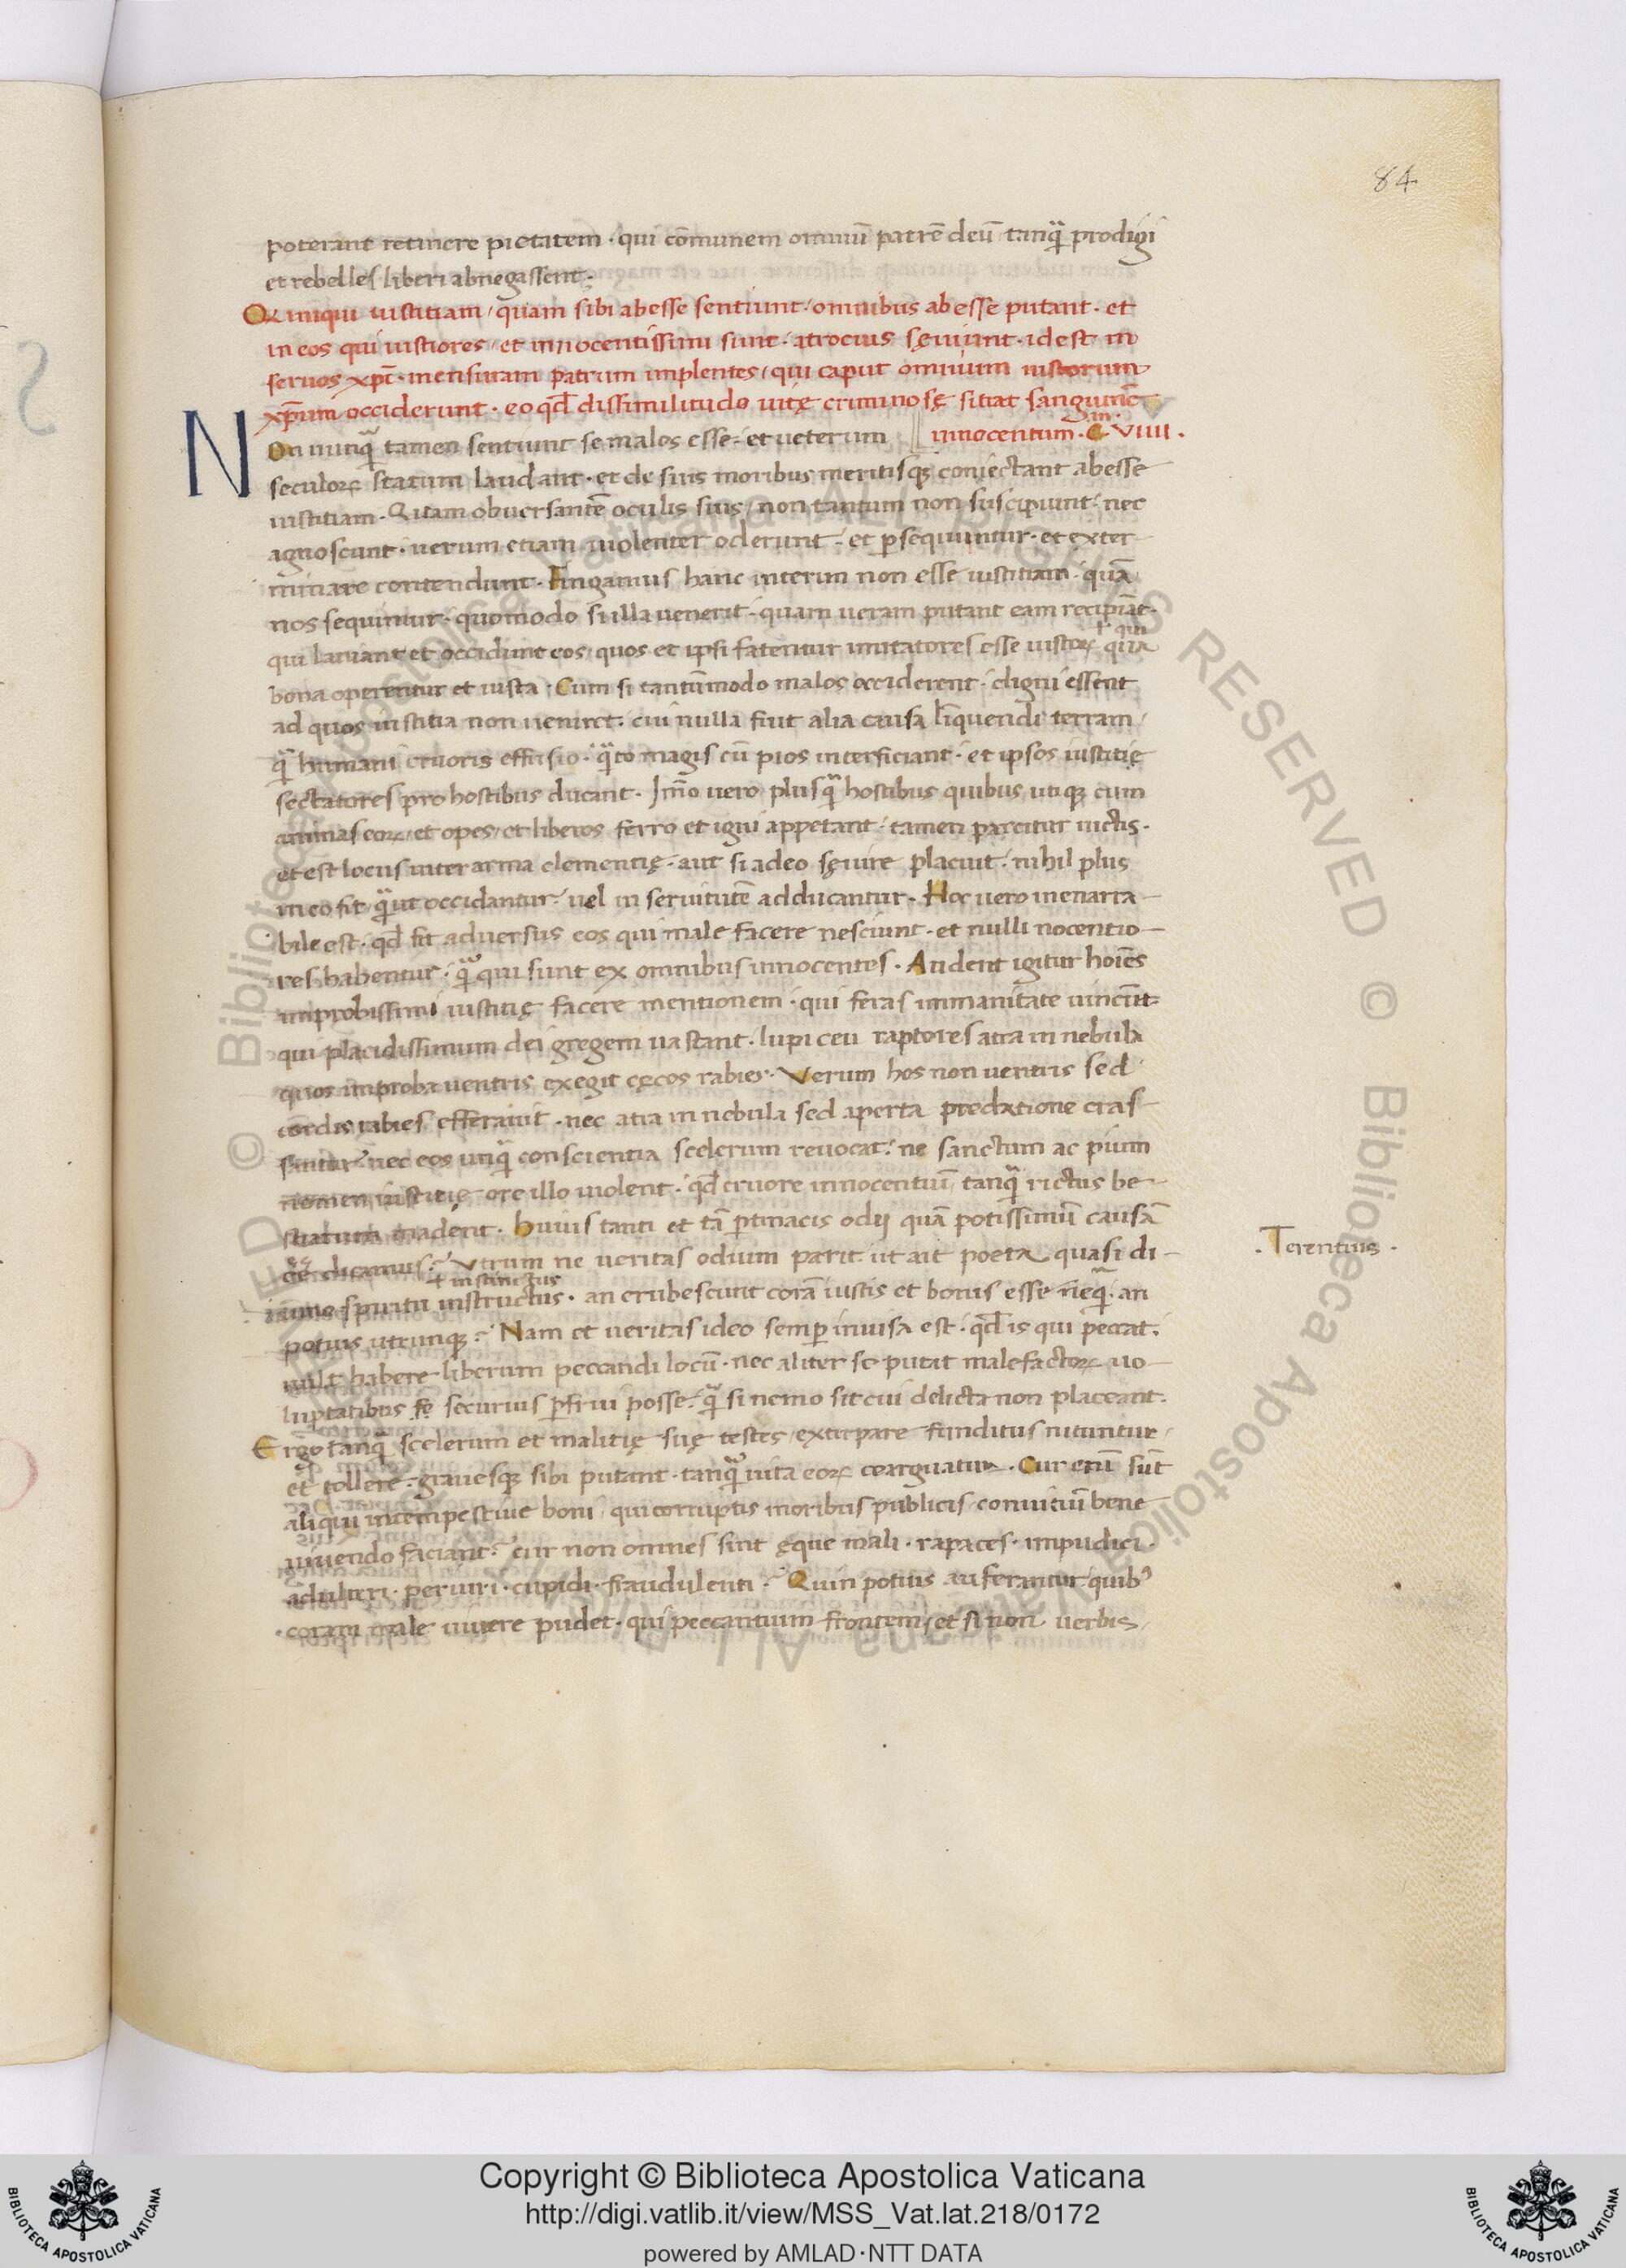 84
poterant retinere pietatem · qui cōmunem omniū patrē deū tanq̃ prodigi
et rebelles liberi abnegassent ·
Q iniqui iustitiam / quam sibi abesse sentiunt / omnibus abesse putant · et
in eos qui iustiores / et innocentissimi sunt · atrocius sęuiunt · idest in
seruos xp̄i · mensuram patrum implentes / qui caput omnium iustorum
xp̄um occiderunt · eo qd̄ dissimilitudo uitę criminosę sitiat sanguinē
NOn nunq̃ tamen sentiunt se malos esse · et ueterum
innocentum · C VIIII ·
seculoꝝ statum laudant · et de suis moribus meritisqꝫ coniectant abesse
iustitiam · Quam obuersantē oculis suis / non tantum non suscipiunt · nec
agnoscunt · uerum etiam uiolenter oderunt · et ꝑsequuntur · et exter-
minare contendunt · Fingamus hanc interim non esse iustitiam · quā
nos sequimur · quomodo si illa uenerit · quam ueram putant eam recipiāt ·
ł qui
qui lauiant et occidunt eos / quos et ipsi fatentur imitatores esse iustoꝝ quia
bona operentur et iusta · Cum si tantūmodo malos occiderent · digni essent
ad quos iustitia non ueniret · cui nulla fuit alia causa liquendi terram /
q̃ humani cruoris effusio · q̃to magis cū pios interficiant · et ipsos iustitię
sectatores pro hostibus ducant · Im̄o uero plusq̃ hostibus quibus utiqꝫ cum
animas eoꝝ / et opes / et liberos ferro et igni appetant · tamen parcitur uictis ·
et est locus inter arma clementię · aut si adeo sęuire placuit · nihil plus
in eo fit / q̃ ut occidantur · uel in seruitutē adducantur · Hoc uero inenarra-
bile est · qd̄ fit aduersus eos qui male facere nesciunt · et nulli nocentio-
res habentur · q̃ qui sunt ex omnibus innocentes · Audent igitur hoīes
improbissimi iustitię facere mentionem · qui feras immanitate uincūt ·
qui placidissimum dei gregem uastant · lupi ceu raptores atra in nebula
quos improba uentris exegit cęcos rabies · Verum hos non uentris sed
cordis rabies efferauit · nec atra in nebula sed aperta predatione cras-
santur · nec eos unq̃ conscientia scelerum reuocat · ne sanctum ac pium
nomen iustitię ore illo uiolent · qd̄ cruore innocentiū tanq̃ rictus be-
stiarum madent · Huius tanti et tā ꝑtinacis odij quā potissimū causā
eē dicamus · Vtrum ne ueritas odium parit ut ait poeta quasi di-
· Terentius ·
ł instinctus
uino spiritu instructus · an erubescunt corā iustis et bonis esse neq̃ · an
potius utrunqꝫ · Nam et ueritas ideo semꝑ inuisa est · qd̄ is qui peccat ·
uult habere liberum peccandi locū · nec aliter se putat malefactoꝝ uo-
luptatibus se securius ꝑfrui posse · q̃ si nemo sit cui delicta non placeant ·
Ergo tanq̃ scelerum et malitię suę testes / extirpare funditus nituntur /
et tollere · grauesqꝫ sibi putant · tanq̃ uita eoꝝ coarguatur · Cur enī sūt
aliqui intempestiue boni / qui corruptis moribus publicis / conuitiū bene
uiuendo faciant · cur non omnes sint ęque mali · rapaces · impudici ·
adulteri · periuri · cupidi · fraudulenti · Quin potius auferantur quibꝰ
coram male uiuere pudet · qui peccantium frontem / et si non uerbis /
Copyright © Biblioteca Apostolica Vaticana
http://digi.vatlib.it/view/MSS_Vat.lat.218/0172
powered by AMLAD·NTT DATA